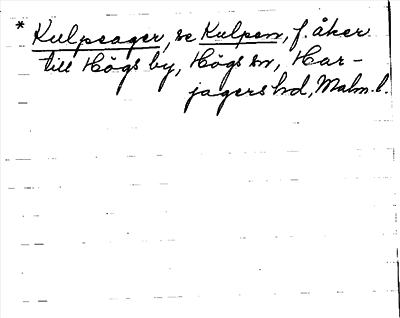 * Kulpeager, se Kulpen, f. åker
till Högs by, Högs sn, Har-
jagers hd, Malm. l.